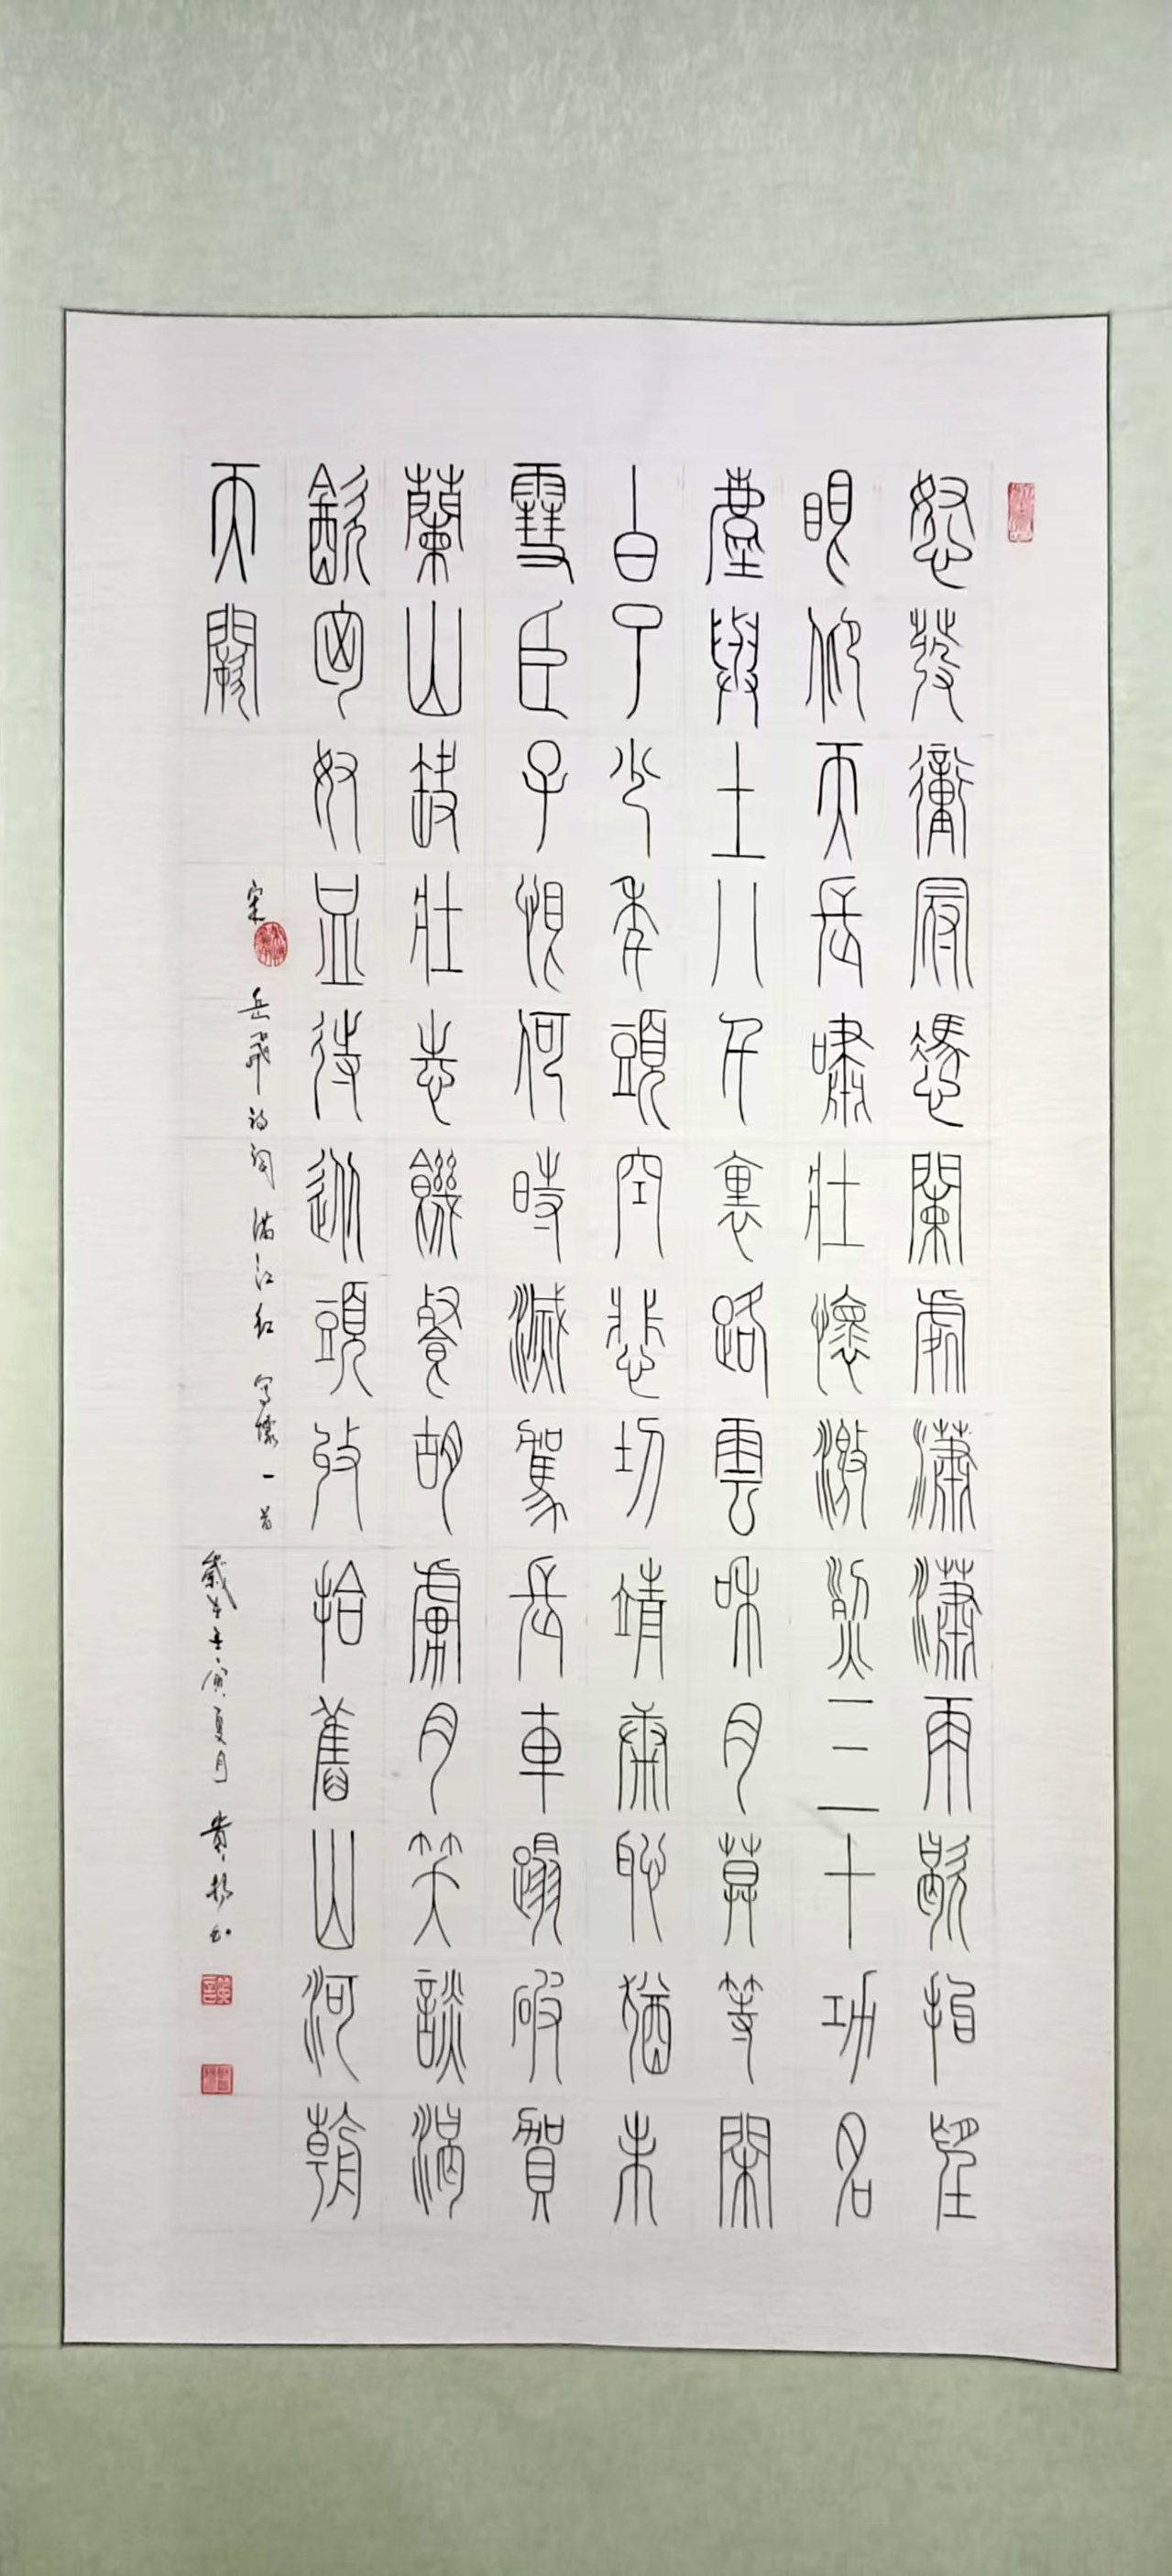 怒發衝冠憑闌處瀟瀟雨歇抬望
眼仰天長嘯壯懷激烈三十功名
塵與土八千裏路雲和月莫等閑
白了少年頭空悲切靖康恥猶未
雪臣子恨何時滅駕長車蹋破賀
蘭山缺壯志饑餐胡虜肉笑談渴
飲匈奴血待從頭收拾舊山河朝
天闕
宋岳飛詩詞滿江紅寫懷一首
歲在壬寅夏月